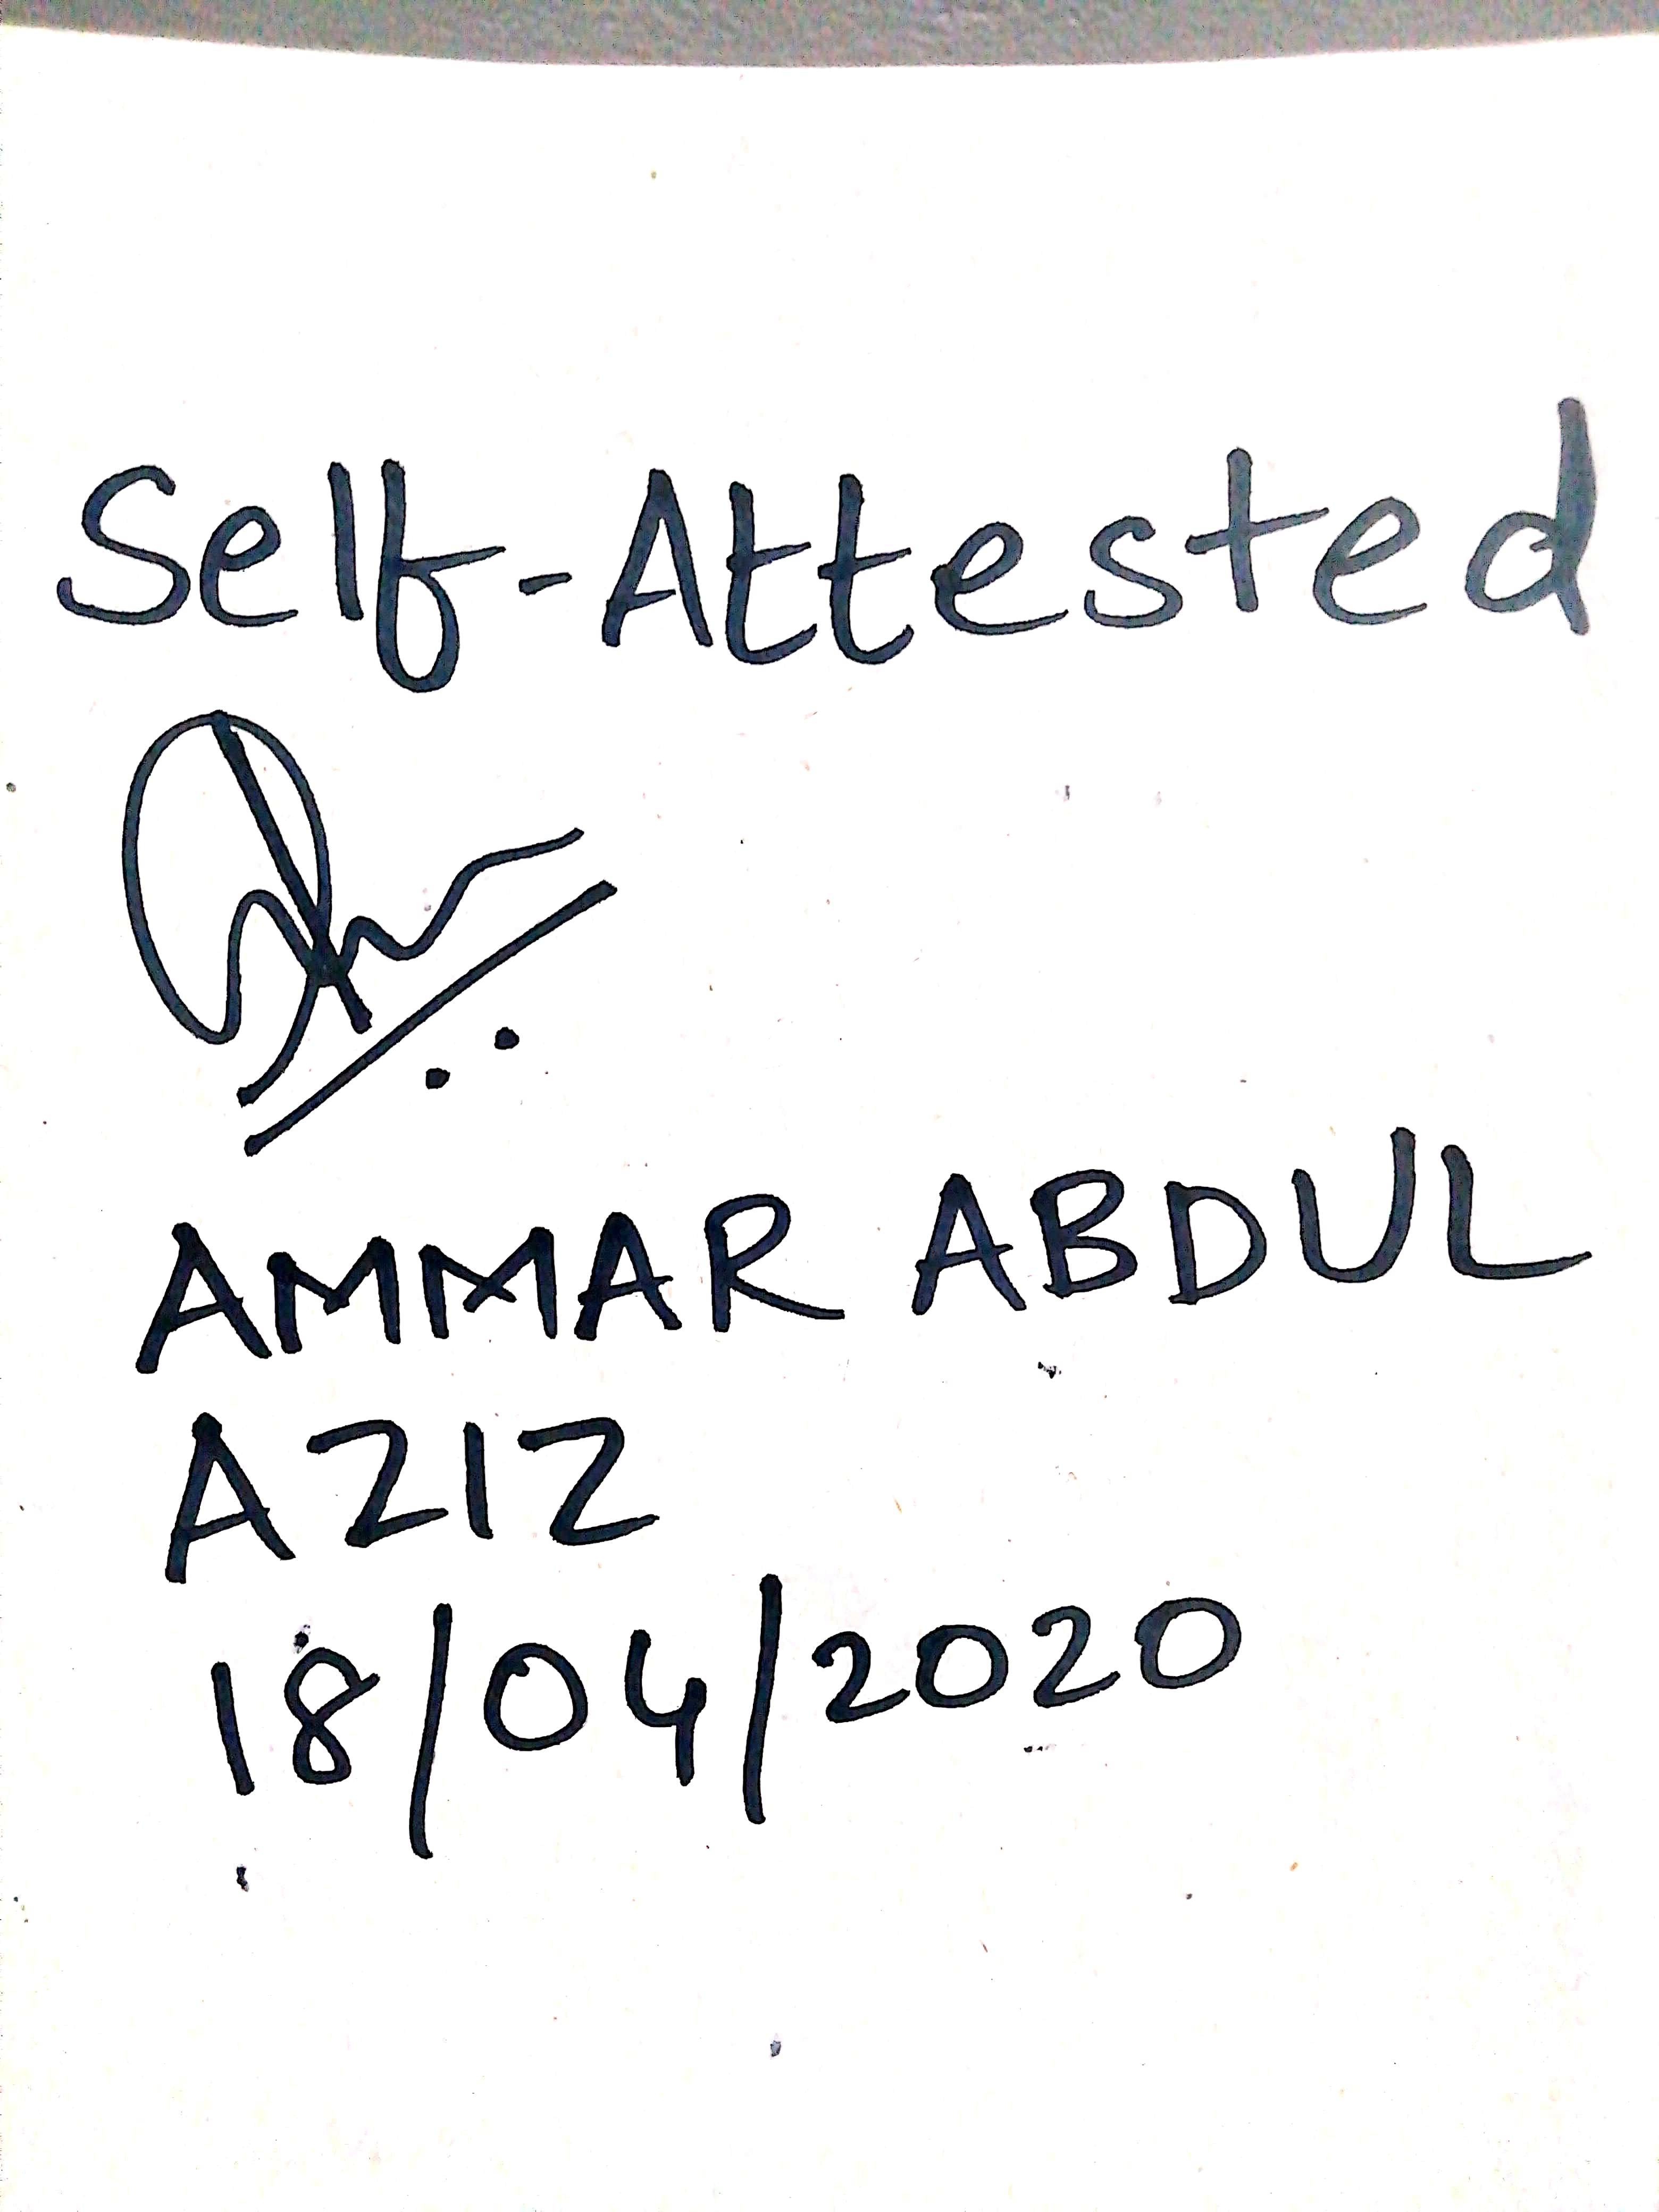 Self-Attested
AMMAR ABDUL
AZIZ
18/04/2020